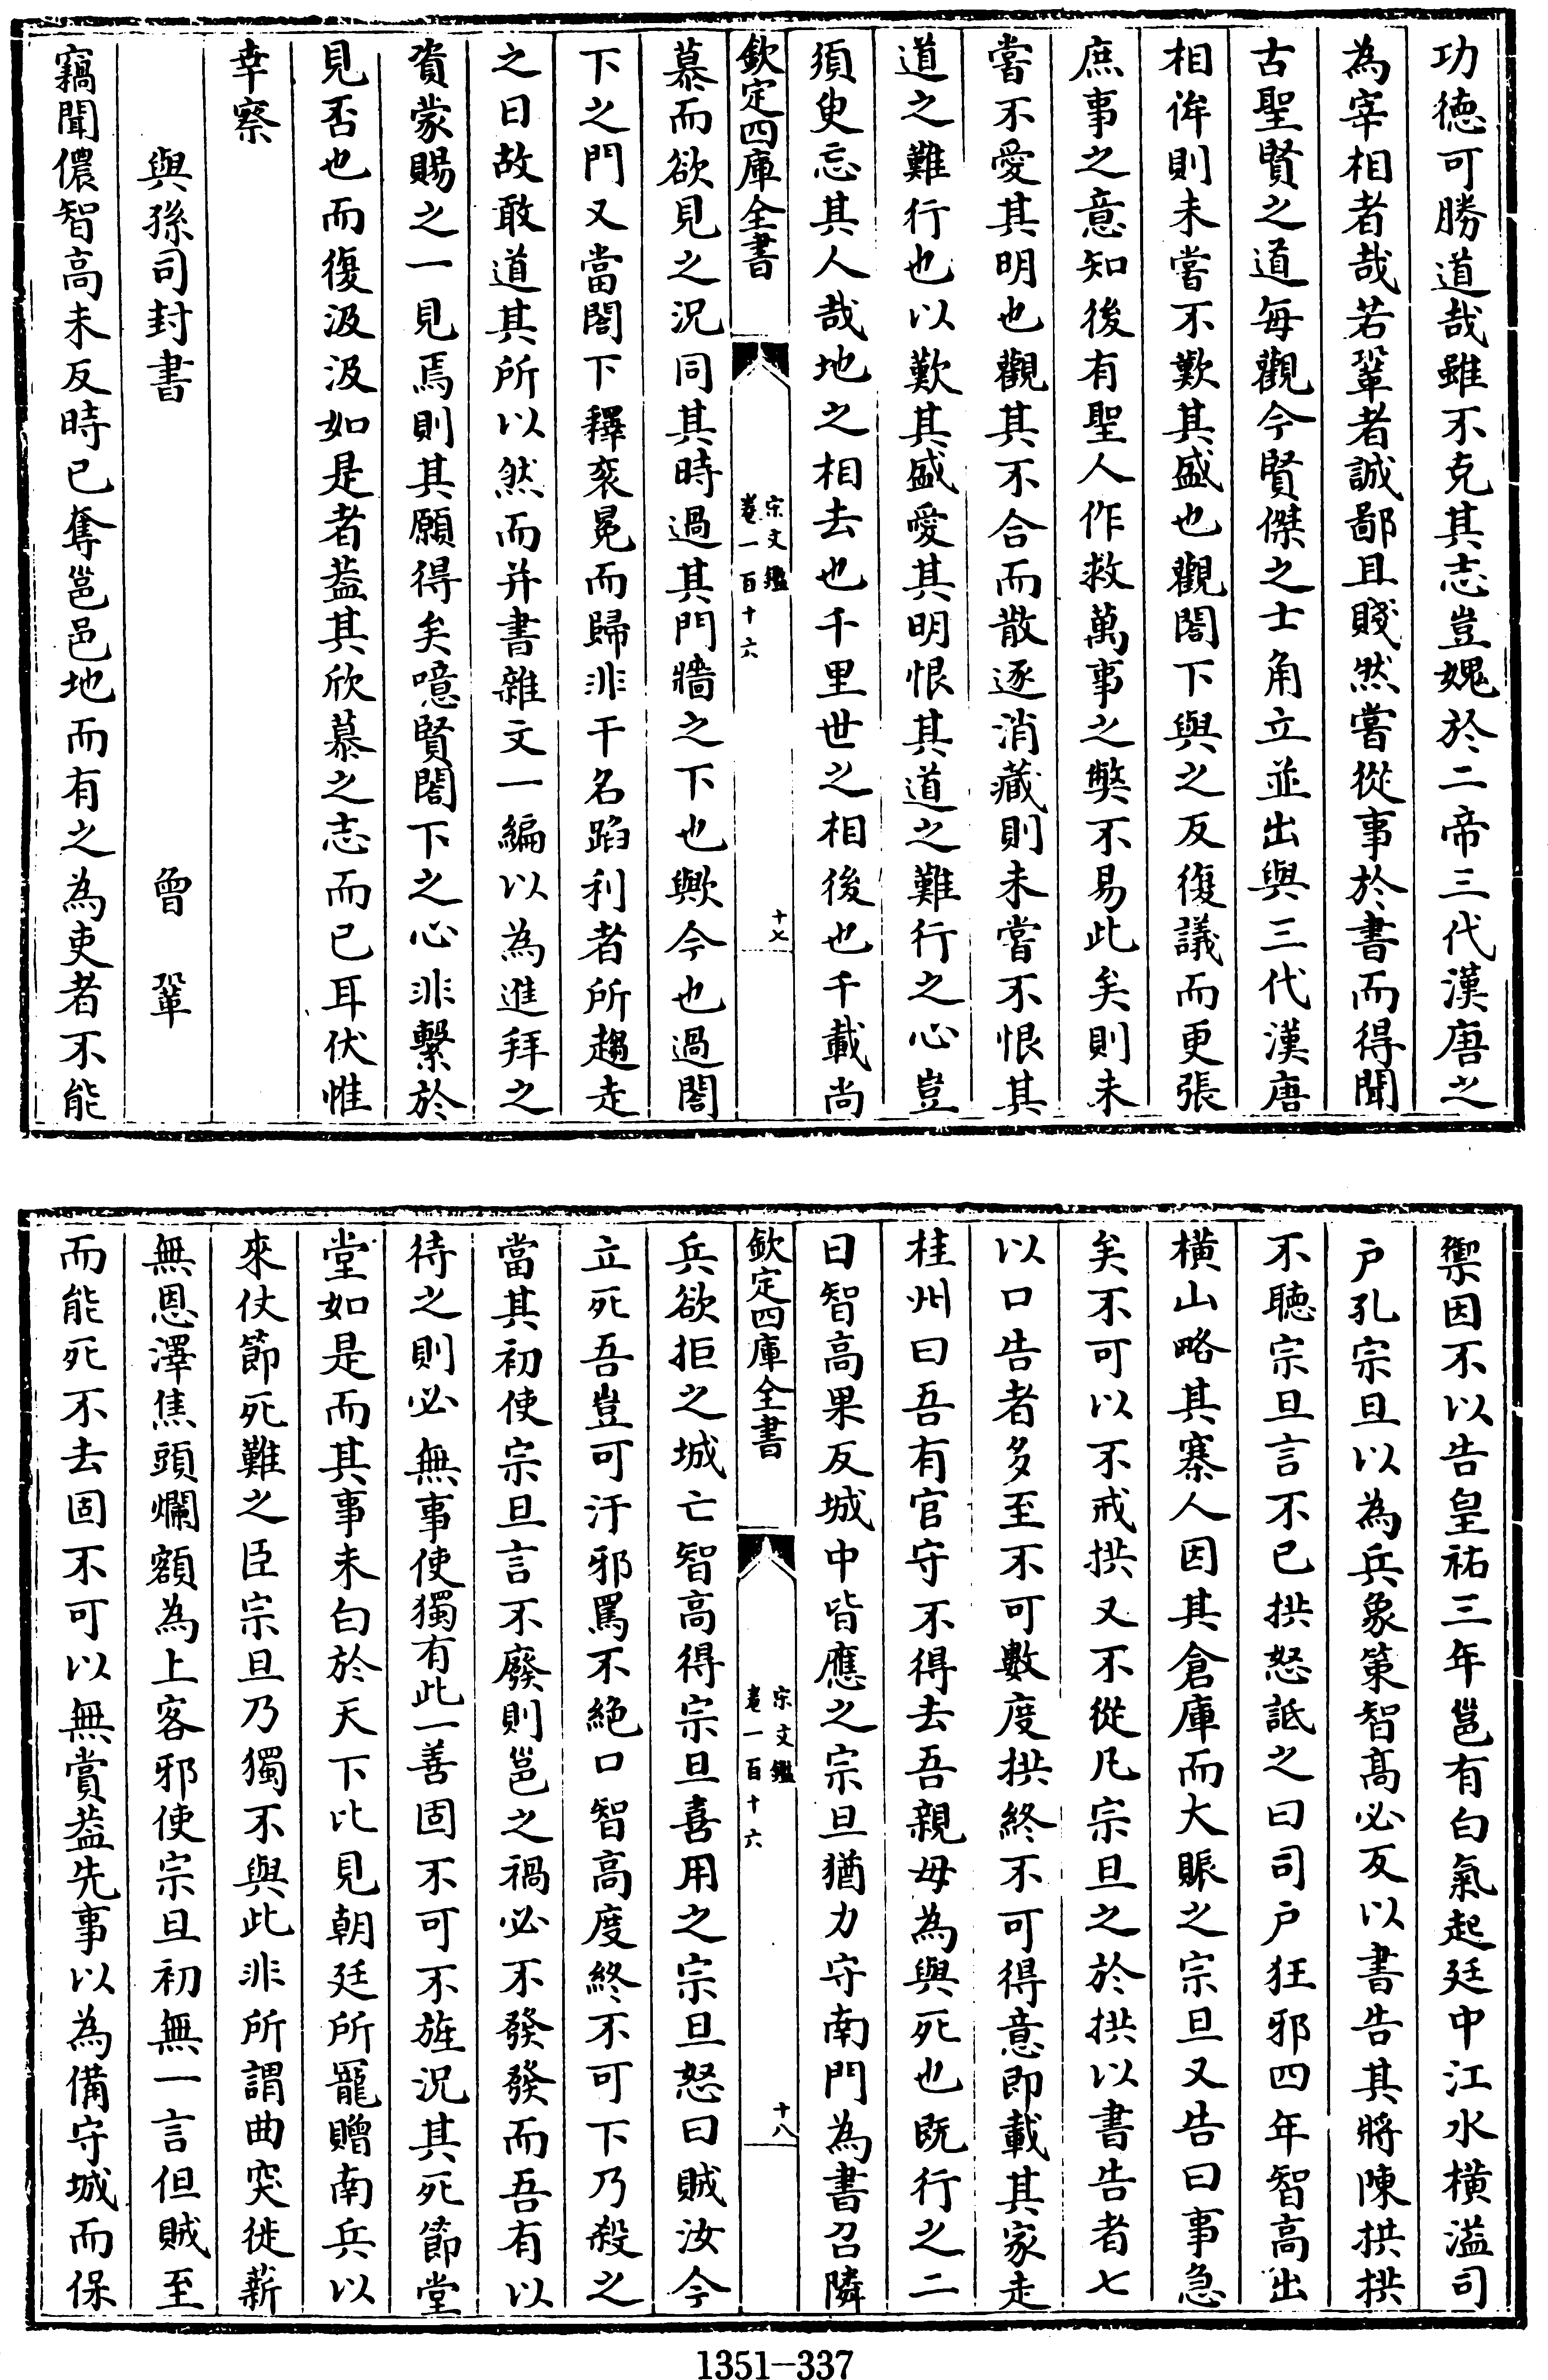 功德可勝道哉雖不克其志豈媿於二帝三代漢唐之
為宰相者哉若鞏者誠鄙且賤然嘗從事於書而得聞
古聖賢之道每觀今賢傑之士角立並出與三代漢唐
相侔則未嘗不歎其盛也觀閤下與之反復議而更張
庶事之意知後有聖人作救萬事之弊不易此矣則未
嘗不愛其明也觀其不合而散逐消藏則未嘗不恨其
道之難行也以歎其盛愛其明恨其道之難行之心豈
須臾忘其人哉地之相去也千里世之相後也千載尚
欽定四庫全書
宋文鑑
卷一百十六
十七
慕而欲見之況同其時過其門牆之下也歟今也過閤
下之門又當閤下釋衮冕而歸非干名蹈利者所趨走
之日故敢道其所以然而并書雜文一編以為進拜之
資蒙賜之一見焉則其願得矣噫賢閤下之心非繫於
見否也而復汲汲如是者葢其欣慕之志而已耳伏惟
幸察
與孫司封書
曾鞏
竊聞儂智高未反時已奪邕邑地而有之為吏者不能
禦因不以告皇祐三年邕有白氣起廷中江水橫溢司
戶孔宗旦以為兵象策智高必反以書告其將陳拱拱
不聽宗旦言不已拱怒詆之曰司戶狂邪四年智高出
橫山略其寨人因其倉庫而大賑之宗旦又告曰事急
矣不可以不戒拱又不從凡宗旦之於拱以書告者七
以口告者多至不可數度拱終不可得意即載其家走
桂州曰吾有官守不得去吾親毋為與死也既行之二
日智高果反城中皆應之宗旦猶力守南門為書召隣
欽定四庫全書
宋文鑑
卷一百十六
十八
兵欲拒之城亡智高得宗旦喜用之宗旦怒曰賊汝今
立死吾豈可汙邪罵不絕口智高度終不可下乃殺之
當其初使宗旦言不廢則邕之禍必不發發而吾有以
待之則必無事使獨有此一善固不可不旌況其死節堂
堂如是而其事未白於天下比見朝廷所寵贈南兵以
來仗節死難之臣宗旦乃獨不與此非所謂曲突徙薪
無恩澤焦頭爛額為上客邪使宗旦初無一言但賊至
而能死不去固不可以無賞葢先事以為備守城而保
1351-337